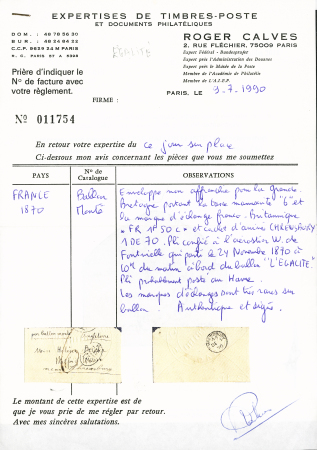 EXPERTISES DE TIMBRES-POSTE
ET DOCUMENTS PHILATÉLIQUES
DOM. : 48 78 56 30
BUR. : 48 24 84 22
C.C.P. 9639 24 M PARIS
R. C. PARIS 57 A 908
EGALITE
ROGER CALVES
2, RUE FLÉCHIER, 75009 PARIS
Expert Fédéral - Bundesprufer
Expert près l'Administration des Douanes
Expert près le Musée de la Poste
Membre de l'Académie de Philatélie
Membre de l'A.I.E.P.
Prière d'indiquer le
No de facture avec
votre règlement.
FIRME :
PARIS, LE 9-7-1990
No 011754
En retour votre expertise du ce jour sur place
Ci-dessous mon avis concernant les pièces que vous me soumettez
PAYS
No de Catalogue
OBSERVATIONS
FRANCE
1870
Ballon
Monté
Enveloppe non affranchie pour la Grande
Bretagne portant la taxe manuscrite "6" et
la marque d'échange franco-Britannique
"FR 1F 50 C" et cachet d'arrivée SHREWSBURY
1 DE 70. Pli confié à l'aérostier W. de
Fontvielle qui partit le 24 Novembre 1870 à
du matin à bord du ballon "L'EGALITE".
Pli probablement posté au Havre.
Les marques d'échange sont très rares sur
ballon. Authentique et signé.
par ballon monté
Angleterre
Le montant de cette expertise est de
que je vous prie de me régler par retour.
Avec mes sincères salutations.